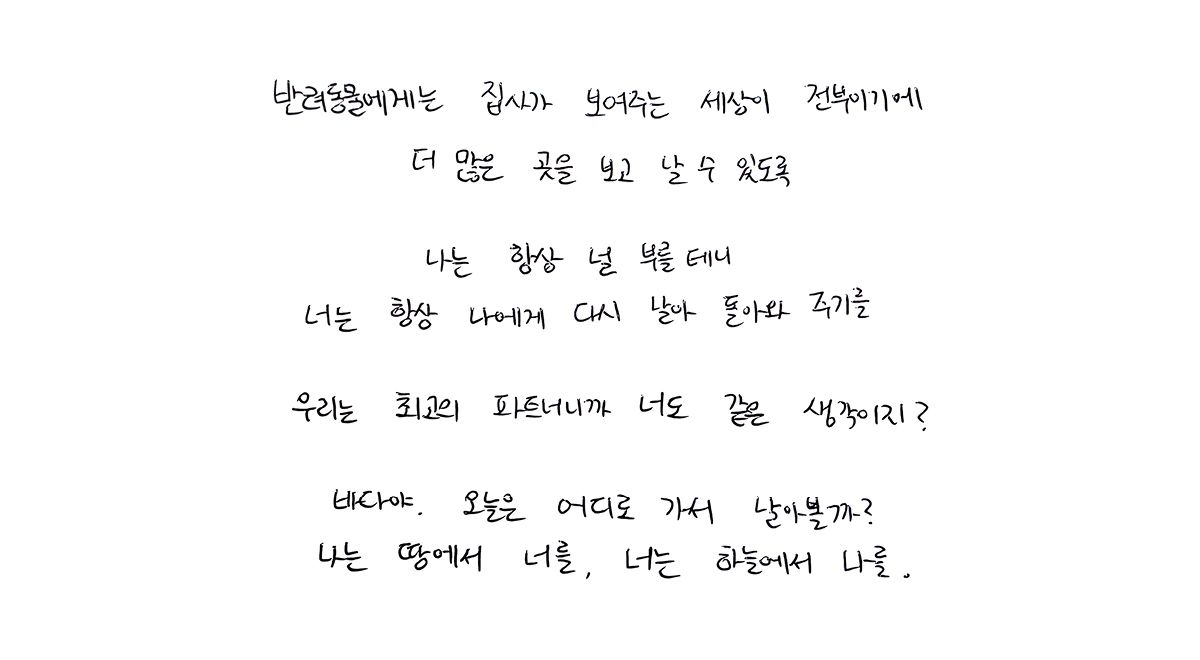 반려동물에게는 집사가 보여주는 세상이 전부이기에
더 많은 곳을 보고 날 수 있도록
나는 항상 널 부를 테니
너는 항상 나에게 다시 날아 돌아와 주기를
우리는 최고의 파트너니까 너도 같은 생각이지?
바다야. 오늘은 어디로 가서 날아볼까?
나는 땅에서 너를, 너는 하늘에서 나를.